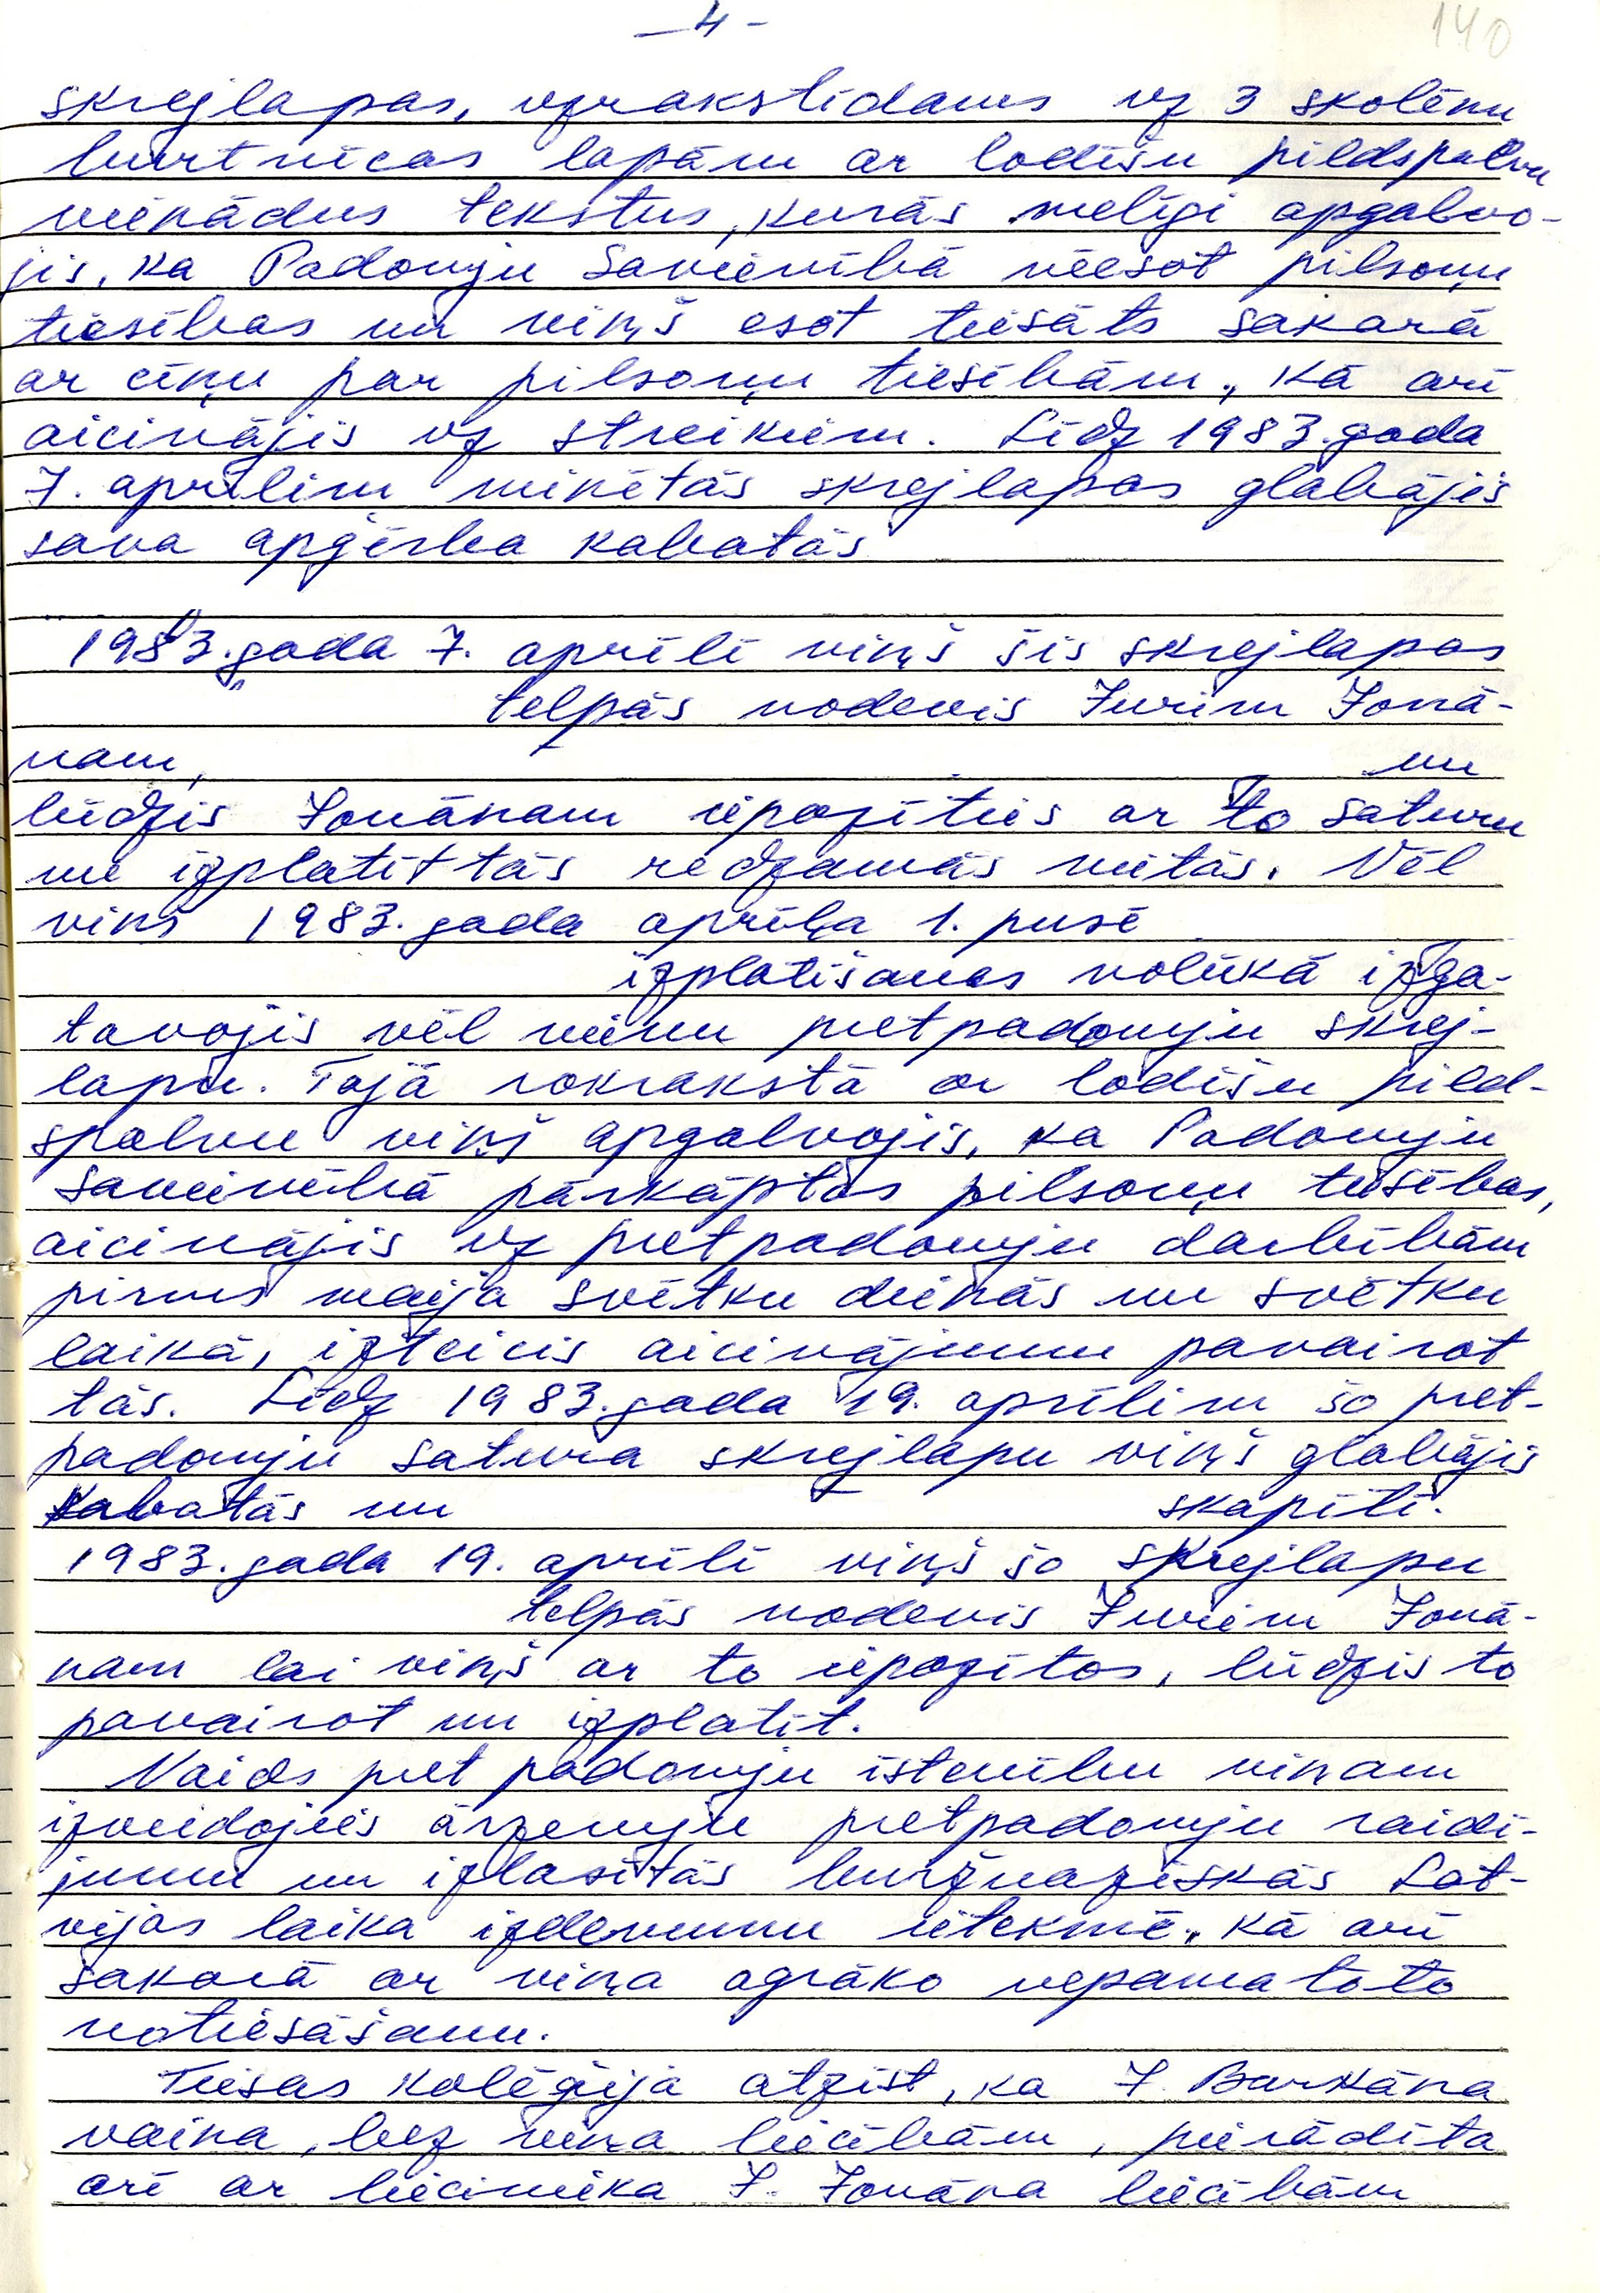 - 4 -
140
skrejlapas, uzrakstīdams uz 3 skolēnu
burtnīcas lapām ar lodīšu pildspalvu
vienādus tekstus, kurās melīgi apgalvo-
jis, ka Padomju Savienībā neesot pilsoņu
tiesības un viņš esot tiesāts sakarā
ar cīņu par pilsoņu tiesībām, kā arī
aicinājis uz streikiem. Līdz 1983. gada
7. aprīlim minētās skrejlapas glabājis
sava apģērba kabatās
1983. gada 7. aprīlī viņš šīs skrejlapas
telpās nodevis Jurim Jonā-
nam, un
lūdzis Jonānam iepazīties ar to saturu
un izplatīt tās redzamās vietās. Vēl
viņš 1983. gada aprīļa 1. pusē
izplatīšanas nolūkā izga-
tavojis vēl vienu pretpadomju skrej-
lapu. Tajā rokrakstā ar lodīšu pild-
spalvu viņš apgalvojis, ka Padomju
Savienībā pārkāptas pilsoņu tiesības,
aicinājis uz pretpadomju darbībām
pirms maija svētku dienās un svētku
laikā, izteicis aicinājumu pavairot
tās. Līdz 1983. gada 19. aprīlim šo pret-
padomju satura skrejlapu viņš glabājis
kabatās un skapītī.
1983. gada 19. aprīlī viņš šo skrejlapu
telpās nodevis Jurim Jonā-
nam lai viņš ar to iepazītos, lūdzis to
pavairot un izplatīt.
Naids pret padomju īstenību viņam
izveidojies ārzemju pretpadomju raidī-
jumu un izlasītās buržuāziskās Lat-
vijas laika izdevumu ietekmē, kā arī
sakarā ar viņa agrāko nepamatoto
notiesāšanu.
Tiesas kolēģija atzīst, ka J. Barkāna
vaina, bez viņa liecībām, pierādīta
arī ar liecinieka J. Jonāna liecībām